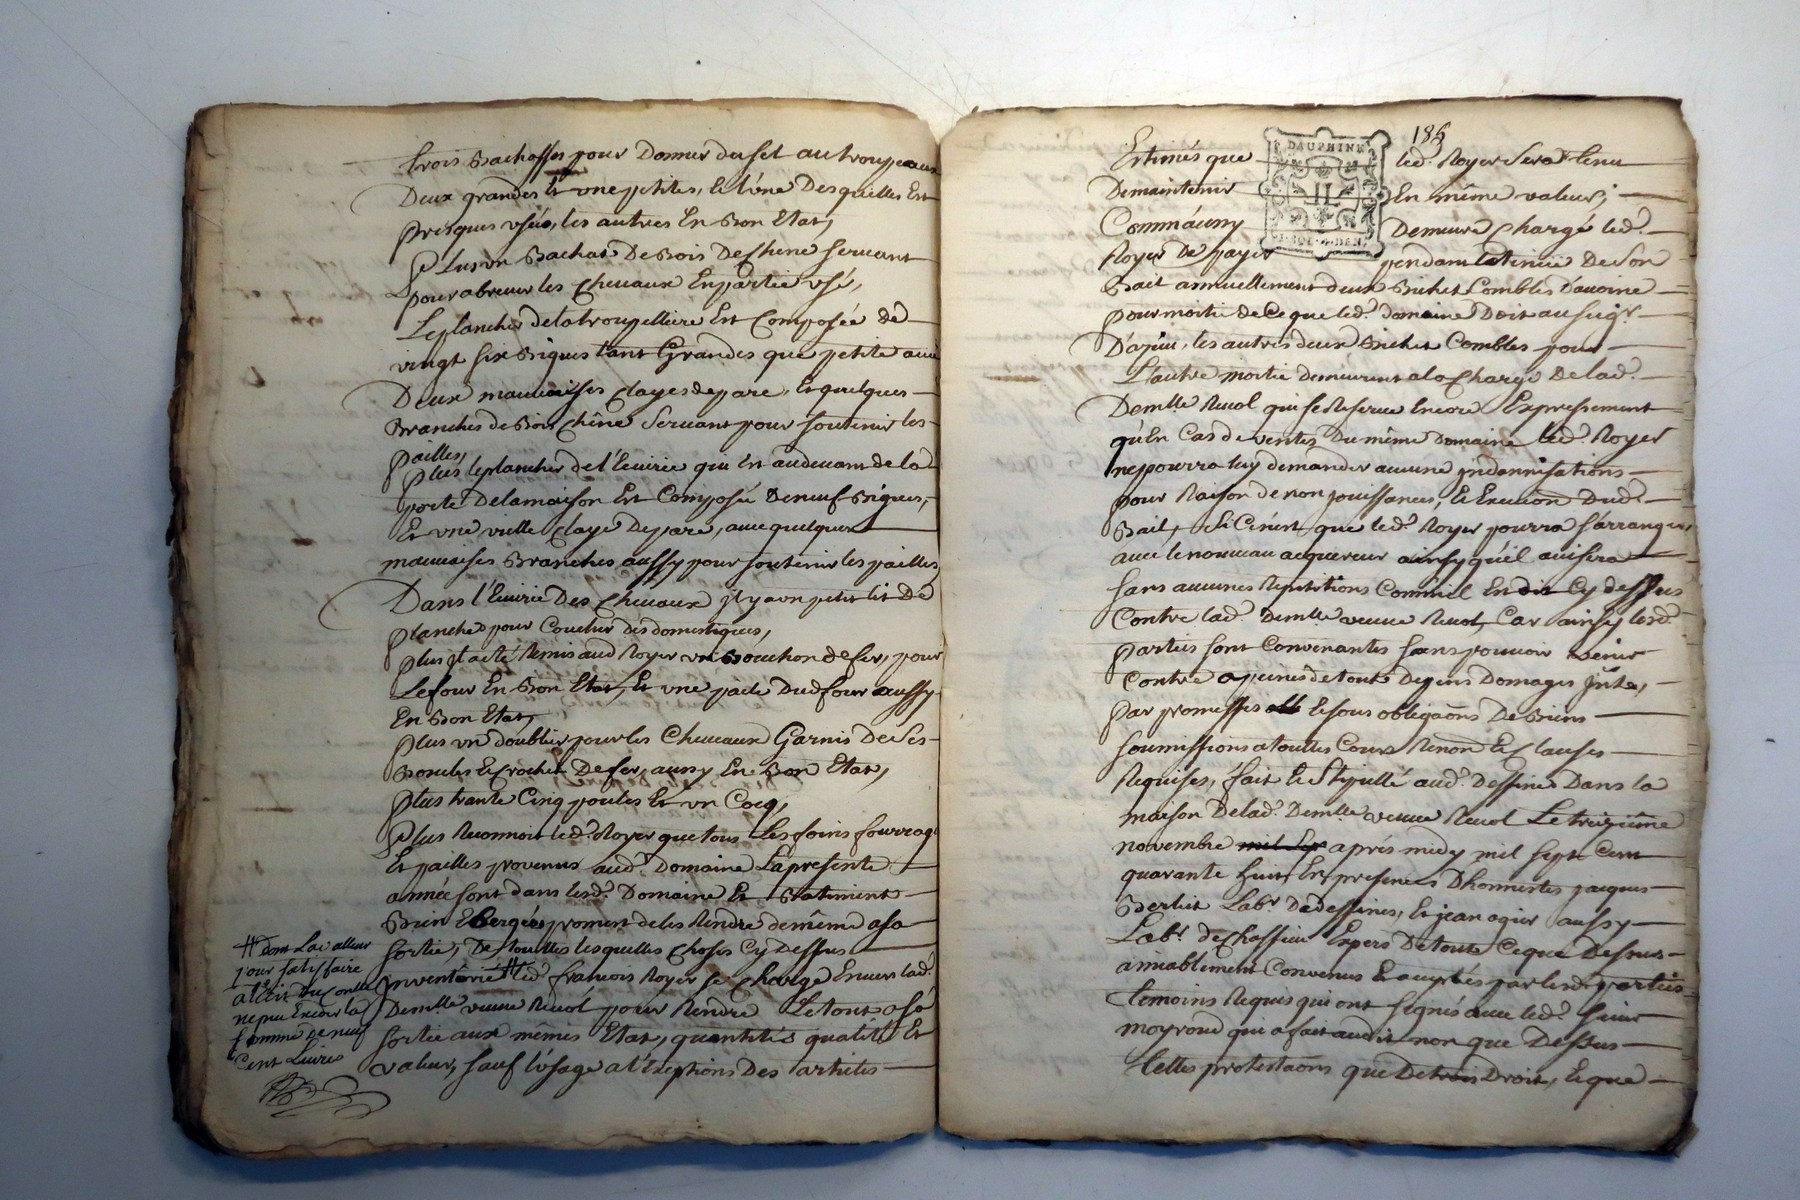 trois Bachasses pour Donner du sel au troupeaux
Deux grandes Et une petites, Et l'une Desquelles Est
presques usées, les autres En Bon Etat,
Plus un Bachat De Bois De chene servant
pour abreuver les chevaux En partie usé,
Le plancher de la troupelliere Est Composée de
vingt six Bigues tant Grandes que petite avec
Deux mauvaises clayes de pare, Et quelques
Branches de Bois chêne servant pour soutenir les
pailles,
Plus le plancher de l'Ecuirie qui Est au devant de la
porte De la maison Est Composée De neuf Bigues,
Et une vielle claye De pare, avec quelques
mauvaises Branches aussy pour soutenir les pailles
Dans l'Ecuirie Des chevaux jl y a un petit lit De
planches pour Coucher Des domestiques,
Plus jl a été Remis aud Royer un Bouchon de fer, pour
Le four En Bon Etat, Et une paele Dud four aussy
En Bon Etat,
Plus un doublier pour les Chevaux Garnis De ses
Boucles Et crochet De fer, aussy En Bon Etat,
Plus trante Cinq poules Et un Cocq,
Plus Reconnoit led. Royer que tous Les foins fourrag
Et pailles provenus aud. Domaine La presente
année sont dans led. Domaine Et Batiment
Bien Ebergées promet de les Rendre de même a sa
sortie, De touttes lesquelles choses Cy Dessus
jnventorié # led. francois Royer se charge Envers lad.
Demlle veuve Revol pour Rendre Le tout a sa
sortie aux mêmes Etat, quantités qualité Et
valeur, sauf l'usage a l'Exeptions Des articles
# dont La valleur
pour satisfaire
a l'Edit du Contlle
ne peu Exceder la
somme De neuf
Cent Livres
185
DAUPHINE
Estimés que led. Royer sera tenu
De maintenir En même valeur;
Comm'aussy Demeure chargé led.
Royer De payer pendant la tenue De son
Bail annuellement deux Bichet Combles D'avoine
pour moitie de Ce que led. domaine Doit au seigr.
D'apieu, les autres deux Bichet Combles pour
L'autre moitie demeurent a la Charge De lad.
Demlle Revol qui se Reserve Encore Expressement
qu'En Cas de ventes Du même Domaine led. Royer
ne pourra luy demander aucune jndannisations
pour Raison de non jouissances, Et Execuõn Dud.
Bail, si Ce n'est que led. Royer pourra s'arranger
avec le nouveau acquereur ainsy qu'il avisera
sans aucunes Repetitions Comme il En dit Cy dessus
Contre lad. Demlle veuve Revol, Car ainsy lesd.
parties sont Convenantes sans pouvoir venir
Contre a peines de touts Depens Domages jnts,
par promesses Et sous obligaõns De Biens
soumissions a touttes Cours Renon Et Clauses
Requises, fait Et stipullé aud. Dessines Dans la
maison De lad. Demlle veuve Revol Le treizieme
novembre mil sep après midy mil sept Cent
quarante huit En presences D'honnestes jacques
Berlit Labr. De dessines, Et jean ogier aussy
Labr. de chassieu Expers De toute Ce que Dessus
amiablement Convenus Et acceptés par lesd. parties
temoins Requis qui ont signés avec led. sieur
moyroud qui a fait audit nom que Dessus
telles protestaõns que De trois Droit, Et que